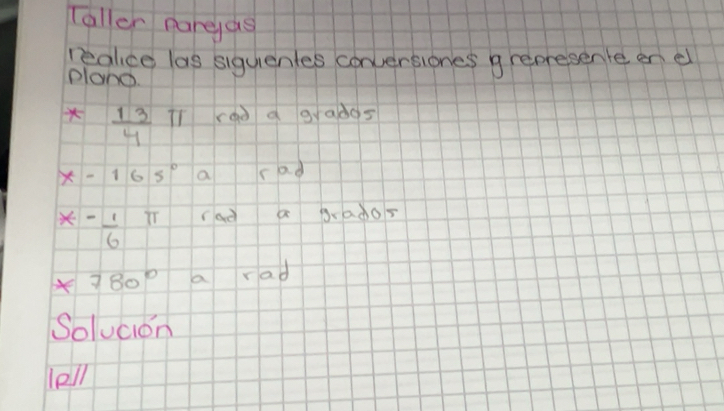 Taller parejas
realice las siguientes conversiones y represente en el
plano.
* 13/4 π rad a grados
* - 165° a rad
* - 1/6 π rad a grados
* 780° a rad
Solución
1P//